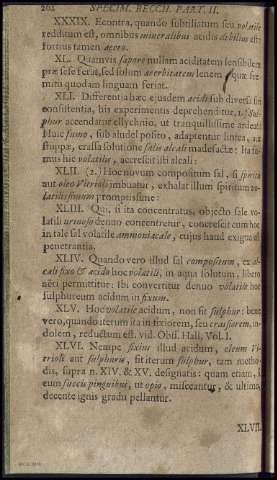 202 SPECIM. BECCH. PART. II.
XXXIX. Econtra, quando subtiliatum seu volatile
redditum est, omnibus mineralibus acidis debilius est:
fortius tamen aceto.
XL. Quamvis sapore nullam aciditatem sensibilem
præ sese ferat, sed solum acerbitatem lenem, quæ
miti quodam linguam feriat.
XLI. Differentia hæc ejusdem acidi sub diversa
consistentia, his experimentis deprehenditur, 1.) Sul-
phur accendatur ellychnio, ut tranquillissime ardeat:
Huic fumo, sub aludel posito, adaptentur lintea,
stuppæ, crassa solutione salis alcali madefactæ: Ita fu-
mus hic volatilis, accrescit isti alcali:
XLII. (2.) Hoc novum compositum sal, si spiritu
aut oleo Vitrioli imbuatur, exhalat illum spiritum vo-
latilissimum promptissime:
XLIII. Qui, si ita concentratus, objecto sale vo-
latili urinoso denuo concentretur, concrescit cum hoc
in tale sal volatile ammoniacale, cujus haud exigua est
penetrantia.
XLIV. Quando vero illud sal compositum, ex al-
cali fixo & acido hoc volatili, in aqua solutum, libero
aëri permittitur: Ibi convertitur denuo volatile hoc
sulphureum acidum in fixum.
XLV. Hoc volatile acidum, non fit sulphur: bene
vero, quando iterum ita in fixiorem, seu crassiorem, in-
dolem, reductum est. vid. Obs. Hall. Vol. I.
XLVI. Nempe fixius illud acidum, oleum Vi-
trioli aut sulphuris, fit iterum sulphur, tam metho-
dis, supra n. XIV. & XV. designatis: quam etiam,
eum succis pinguibus, ut opio, misceantur, & ultimo
decente ignis gradu pellantur.
XLVII.